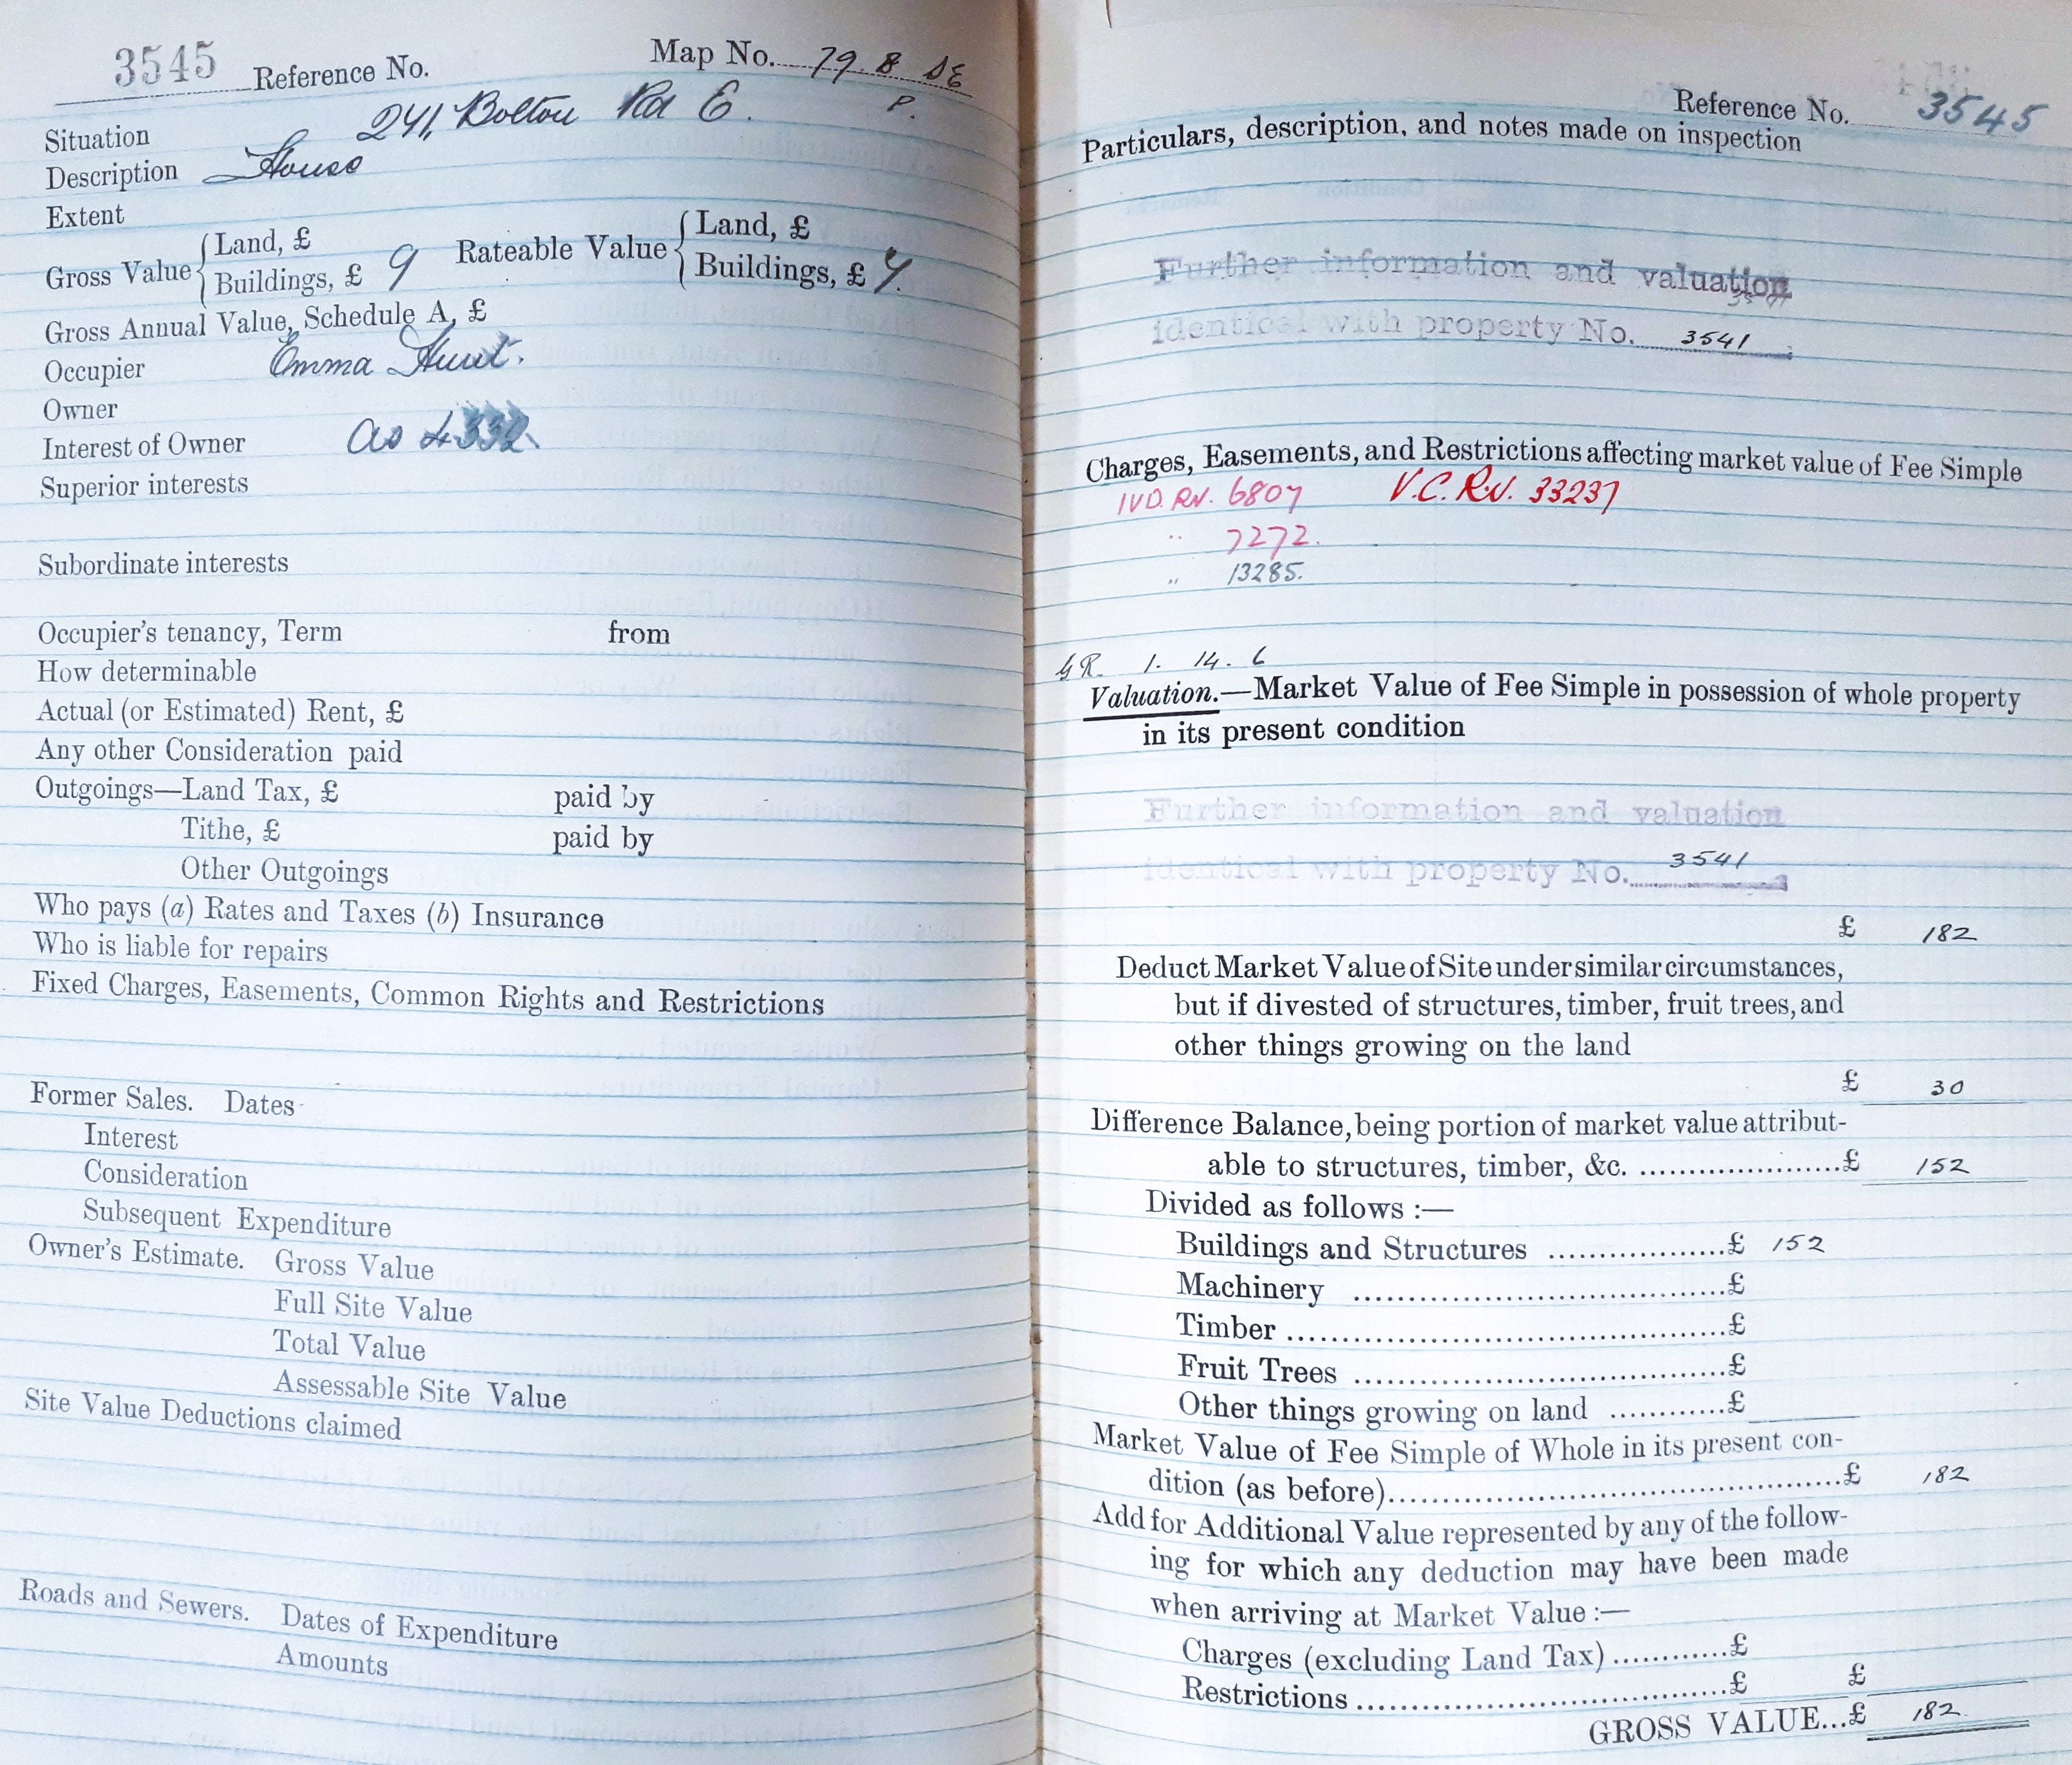 3545 Reference No. Map No. 79. 8 SE
P.
Situation 241, Bolton Rd E.
Description House
Extent
Gross Value { Land, £ Rateable Value { Land, £
Buildings, £ 9 Buildings, £ 7.
Gross Annual Value, Schedule A, £
Occupier Emma Hunt.
Owner
Interest of Owner as 4332
Superior interests
Subordinate interests
Occupier's tenancy, Term from
How determinable
Actual (or Estimated) Rent, £
Any other Consideration paid
Outgoings—Land Tax, £ paid by
Tithe, £ paid by
Other Outgoings
Who pays (a) Rates and Taxes (b) Insurance
Who is liable for repairs
Fixed Charges, Easements, Common Rights and Restrictions
Former Sales. Dates
Interest
Consideration
Subsequent Expenditure
Owner's Estimate. Gross Value
Full Site Value
Total Value
Assessable Site Value
Site Value Deductions claimed
Roads and Sewers. Dates of Expenditure
Amounts
Reference No. 3545
Particulars, description, and notes made on inspection
Further information and valuation
identical with property No. 3541
Charges, Easements, and Restrictions affecting market value of Fee Simple
IVD. RN. 6807 V.C. RN. 33237
" 7272.
" 13285.
GR. 1. 14. 6
Valuation.—Market Value of Fee Simple in possession of whole property
in its present condition
Further information and valuation
identical with property No. 3541
£ 182
Deduct Market Value of Site under similar circumstances,
but if divested of structures, timber, fruit trees, and
other things growing on the land
£ 30
Difference Balance, being portion of market value attribut-
able to structures, timber, &c. ......................£ 152
Divided as follows :—
Buildings and Structures ..................£ 152
Machinery ......................................£
Timber .............................................£
Fruit Trees ......................................£
Other things growing on land ............£
Market Value of Fee Simple of Whole in its present con-
dition (as before)..............................................£ 182
Add for Additional Value represented by any of the follow-
ing for which any deduction may have been made
when arriving at Market Value :—
Charges (excluding Land Tax) ............£
Restrictions .....................................£ £
GROSS VALUE...£ 182